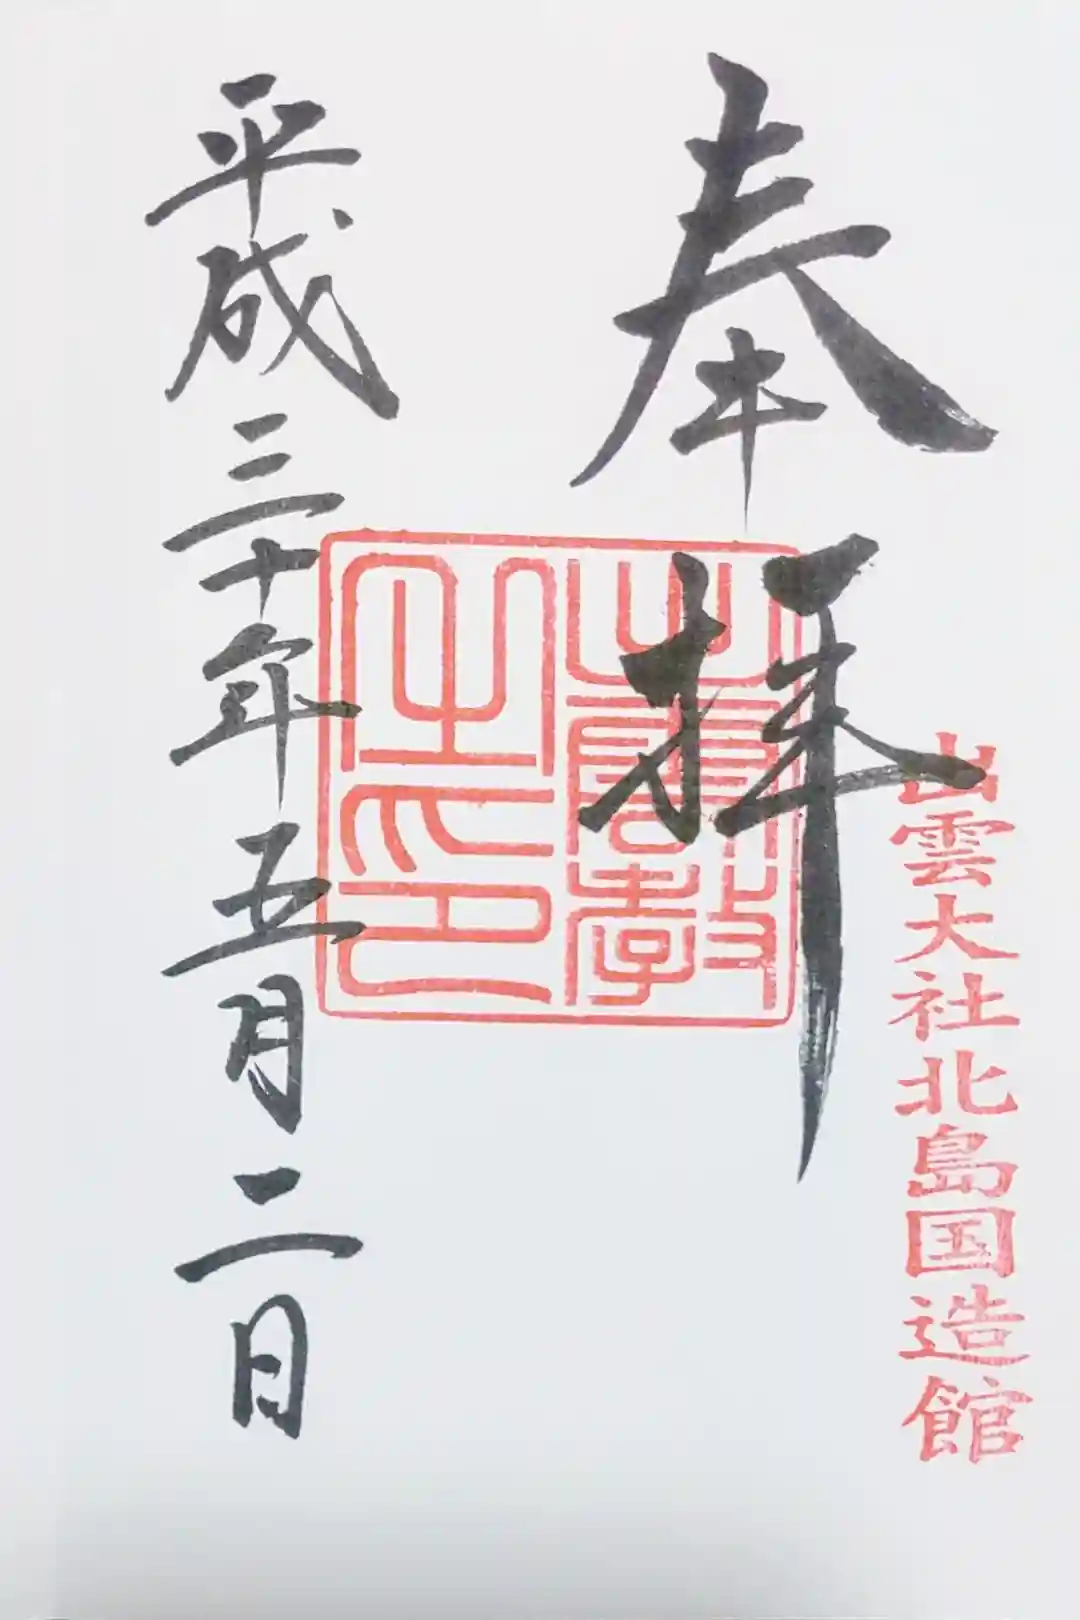 奉拝
出雲大社北島国造館
出雲教
之印
平成三十年五月二日